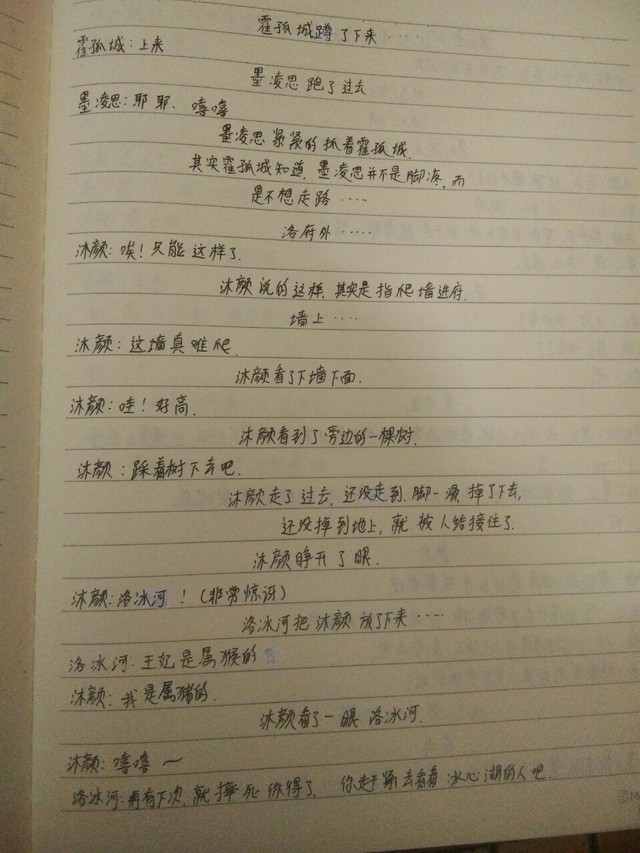 霍孤城蹲了下来····
霍孤城:上来
墨凌思跑了过去
墨凌思:耶耶.嘻嘻
墨凌思紧紧的抓着霍孤城.
其实霍孤城知道,墨凌思并不是脚疼,而
是不想走路····
洛府外·····
沐颜:唉!只能这样了.
沐颜说的这样,其实是指爬墙进府.
墙上····
沐颜:这墙真难爬.
沐颜看了下墙下面.
沐颜:哇!好高.
沐颜看到了旁边的一棵树.
沐颜:踩着树下去吧.
沐颜走了过去,还没走到,脚一滑掉了下去,
还没掉到地上,就被人给接住了.
沐颜睁开了眼.
沐颜:洛冰河!(非常惊讶)
洛冰河把沐颜放了下来····
洛冰河:王妃是属猴的
沐颜:我是属猪的.
沐颜看了一眼洛冰河.
沐颜:嘻嘻~
洛冰河:再有下次,就摔死你得了. 你赶紧去看看冰心湖的人吧.